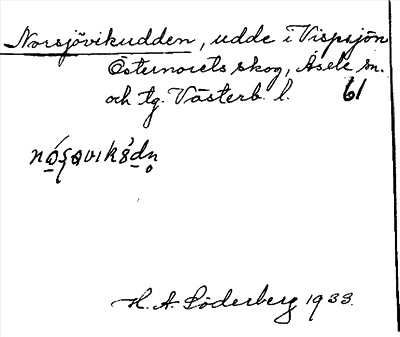 Norsjövikudden, udde i Vispsjön
Östernorets skog, Åsele sn.
och tg. Västerb. l. 61
H. A. Söderberg 1933.